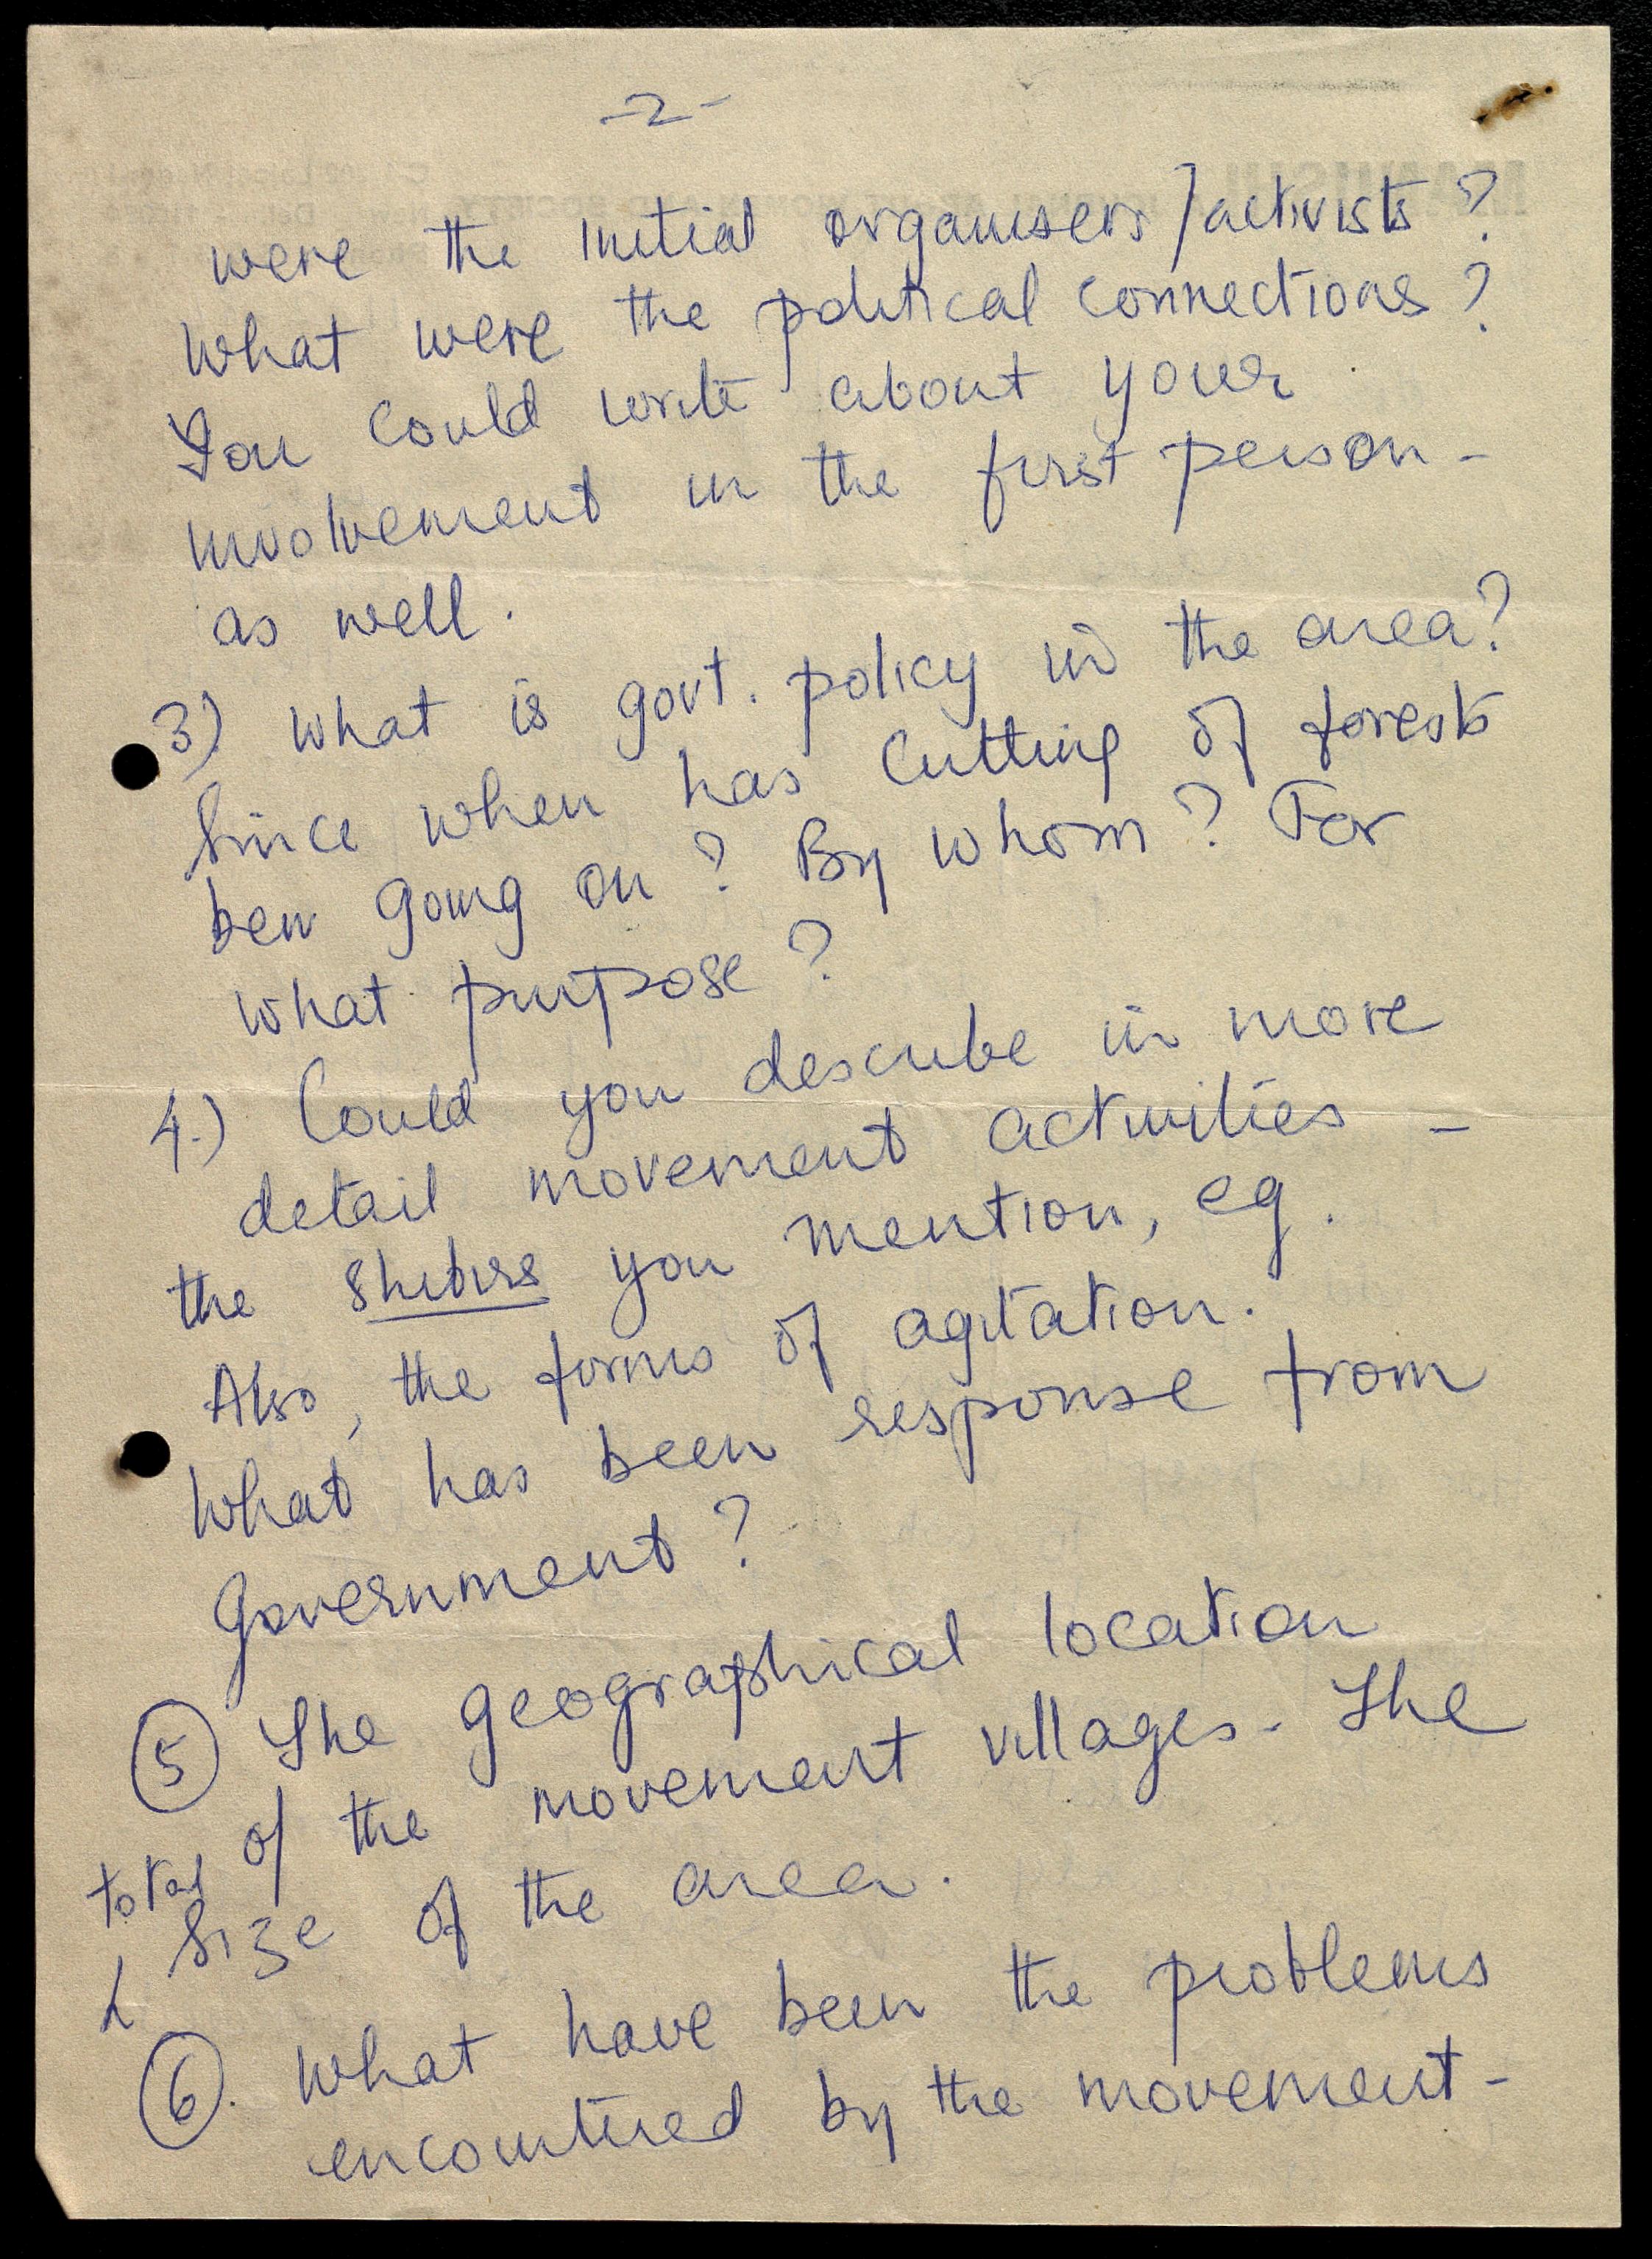 -2-
were the initial organisers/activists?
What were the political connections?
You could write about your
involvement in the first person -
as well.
3) What is govt. policy in the area?
Since when has cutting of forests
been going on? By whom? For
what purpose?
4.) Could you describe in more
detail movement activities -
the shibirs you mention, eg.
Also, the forms of agitation.
What has been response from
Government?
5 The geographical location
of the movement villages. The
total
size of the area.
6. What have been the problems
encountered by the movement -